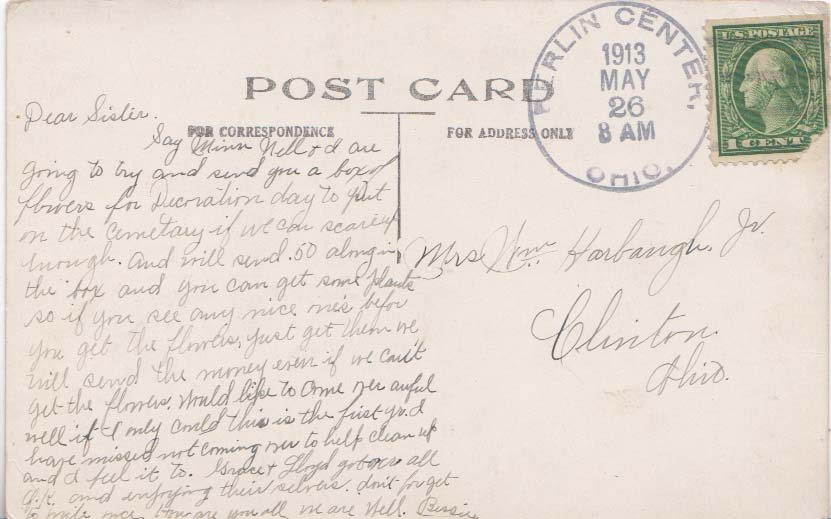 POST CARD
FOR CORRESPONDENCE
FOR ADDRESS ONLY
BERLIN CENTER,
1913
MAY
26
8 AM
OHIO.
U.S. POSTAGE
1 CENT
Dear Sister.
Say Minn Nell & I are
going to try and send you a box of
flowers for Decoration day to put
on the cemetary if we can scare up
enough. And will send .50 along in
the box and you can get some plants
so if you see any nice one's befor
you get the flowers, just get them we
will send the money even if we can't
get the flowers. Would like to come over awful
well if I only could this is the first yr. I
have missed not coming over to help clean up
and I feel it to. Grace & Lloyd got over all
O.K. and enjoying their selves. don't forget
to write once. How are you all we are Well. Bessie
Mrs. Wm Harbaugh, Jr.
Clinton.
Ohio.